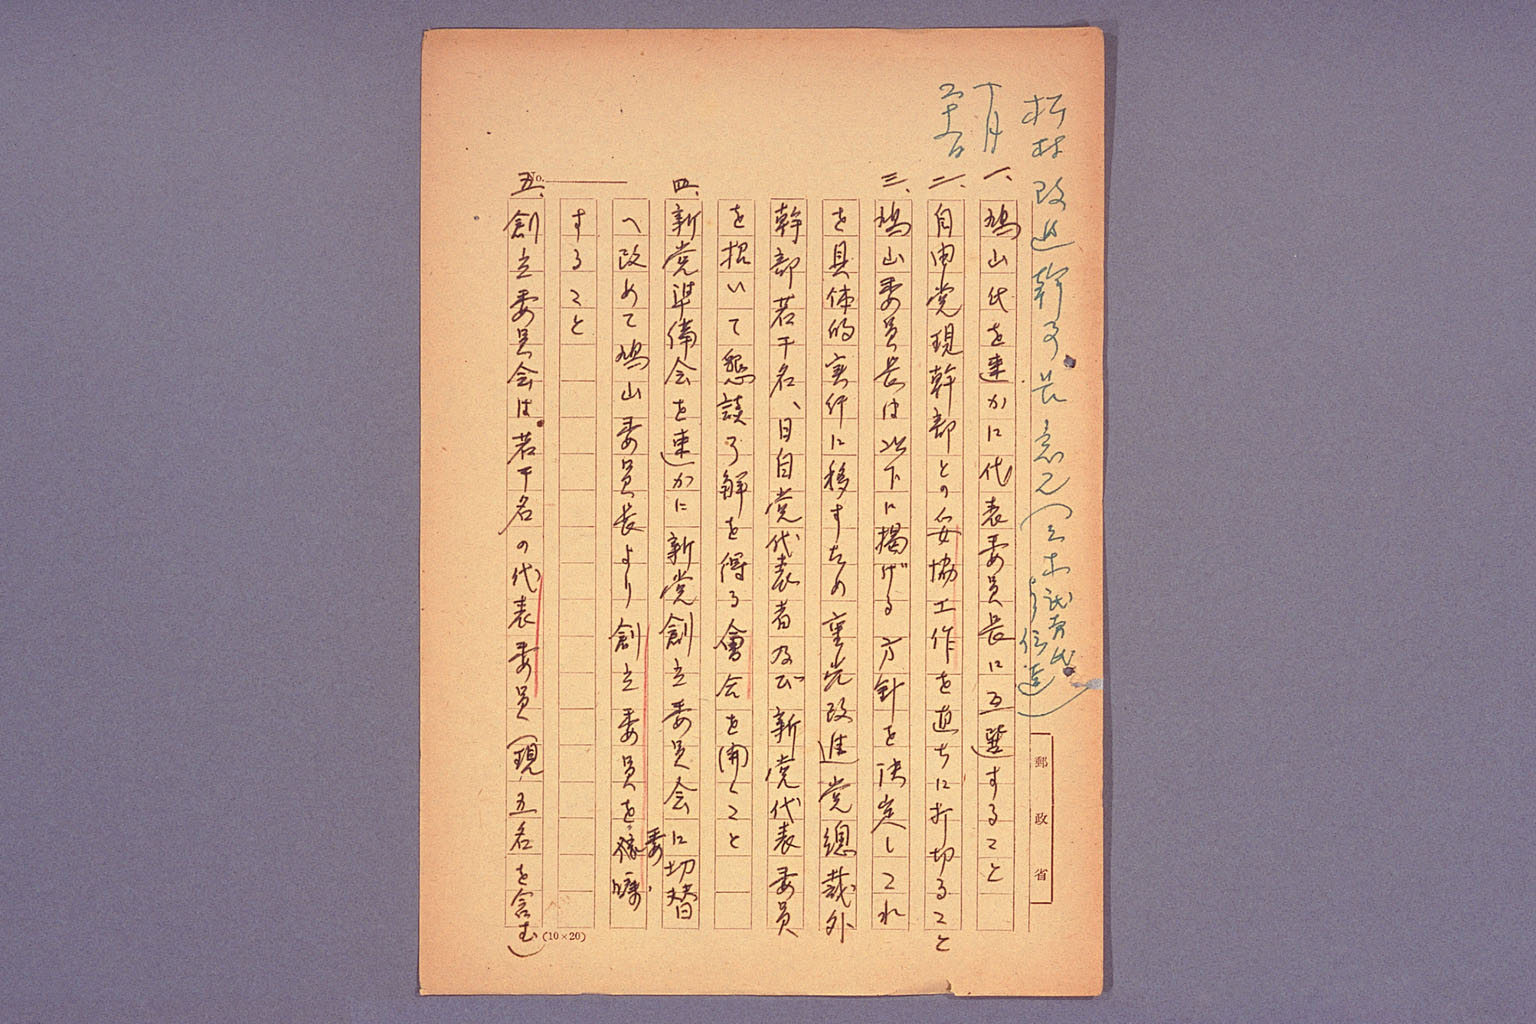 松村改進幹事長意見(三木武吉氏より伝達)
十月二十六日
一、鳩山氏を速かに代表委員長に互選すること
二、自由党現幹部との妥協工作を直ちに打切ること
三、鳩山委員長は以下に掲げる方針を決定しこれ
を具体的実行に移すため重光改進党總裁外
幹部若干名、日自党代表者及び新党代表委員
を招いて懇談了解を得る會合を開くこと
四、新党準備会を速かに新党創立委員会に切替
へ改めて鳩山委員長より創立委員を委嘱
すること
五、創立委員会は若干名の代表委員(現五名を含む)
No.
郵政省
(10×20)